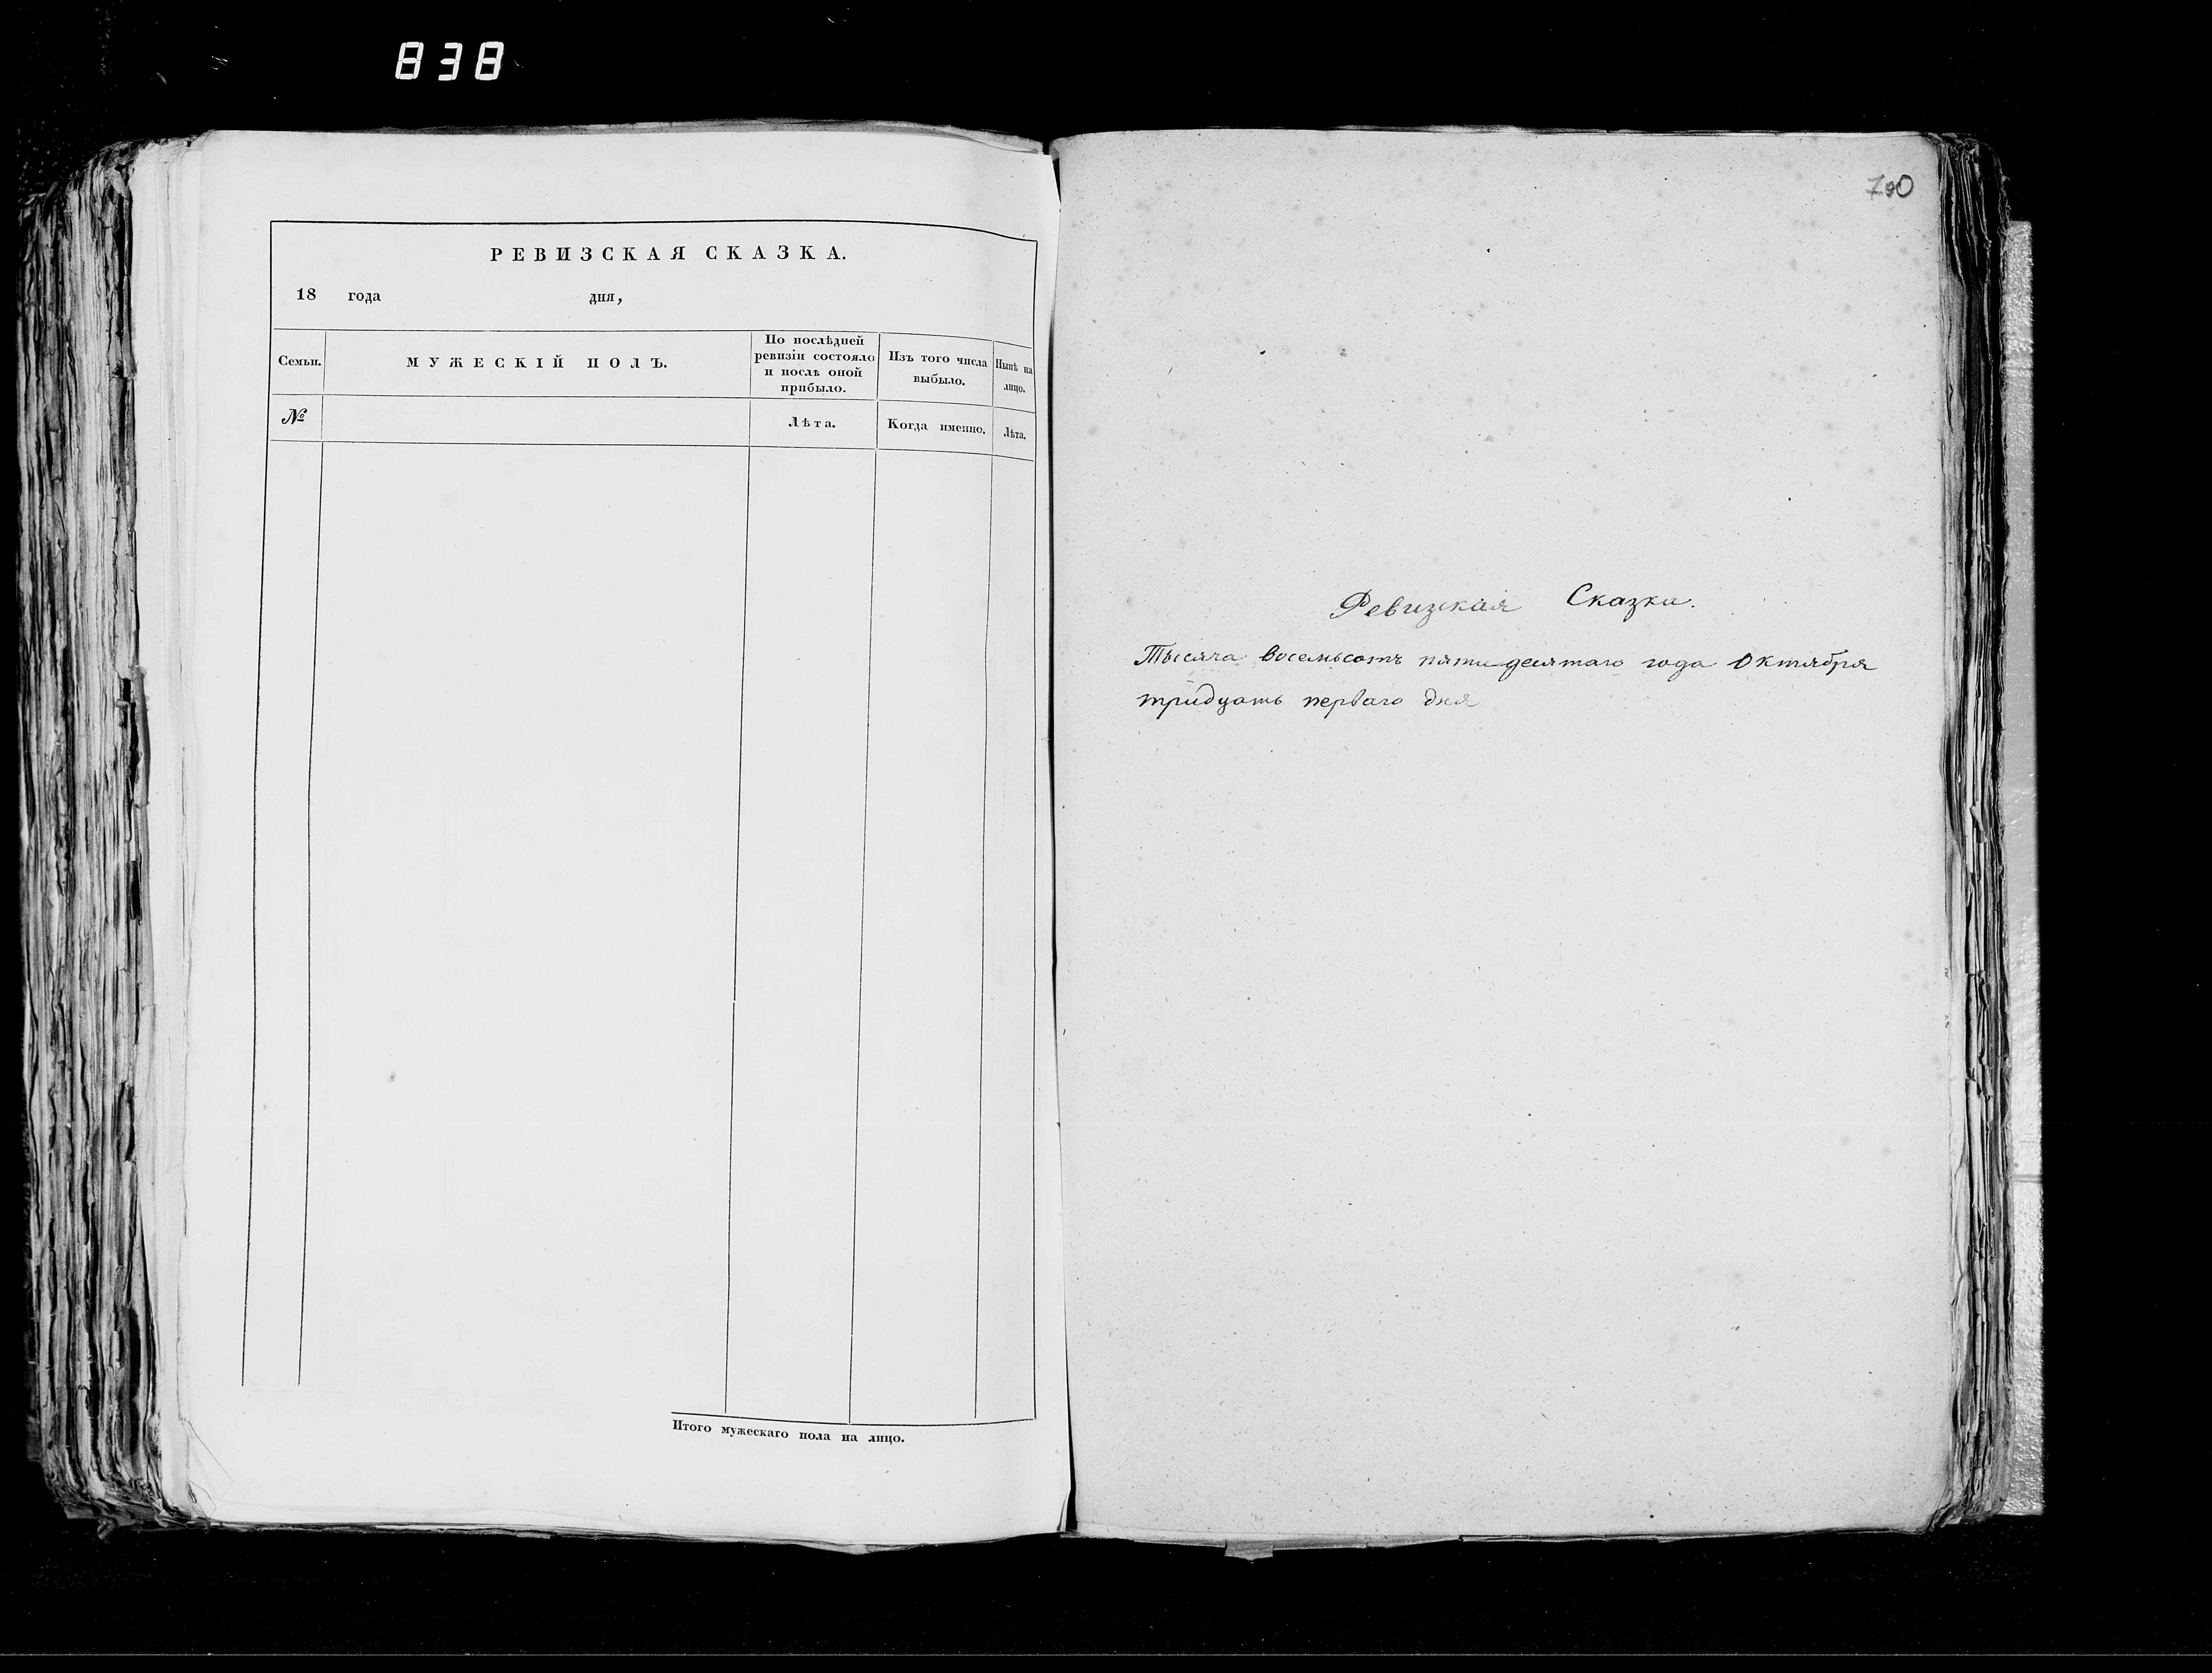 838
РЕВИЗСКАЯ СКАЗКА.
18 года дня,
Семьи.
МУЖЕСКІЙ ПОЛЪ.
По послѣдней
ревизіи состояло
и послѣ оной
прибыло.
Изъ того числа
выбыло.
Нынѣ на
лицо.
№
Лѣта.
Когда именно.
Лѣта.
Итого мужескаго пола на лицо.
Ревизская Сказка.
Тысяча восемьсотъ пятидесятаго года Октября
тридцать перваго дня